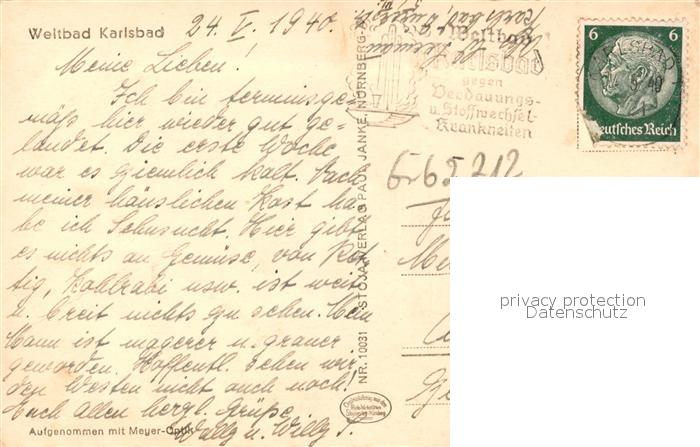 Weltbad Karlsbad
24. V. 1940.
Meine Lieben!
Ich bin terminsge-
mäß hier wieder gut ge-
landet. Die erste Woche
war es ziemlich kalt. Nach
meiner häuslichen Kost ha-
be ich Sehnsucht. Hier gibt
es nichts an Gemüse, von Ret-
tig, Kohlrabi usw. ist weit
u. breit nichts zu sehen. Mein
Mann ist magerer u. grauer
geworden. Hoffentl. sehen wir
den Westen nicht auch noch!
Euch allen herzl. Grüße
Willy S.
Aufgenommen mit Meyer-Optik
NR. 10031 STOJA-VERLAG PAUL JANKE, NÜRNBERG-A
Karlsbad,
Weltbad
Karlsbad
gegen
Verdauungs-
u. Stoffwechsel-
Krankheiten
KARLSBAD
40
6 6
Deutsches Reich
6-65 212
privacy protection
Datenschutz